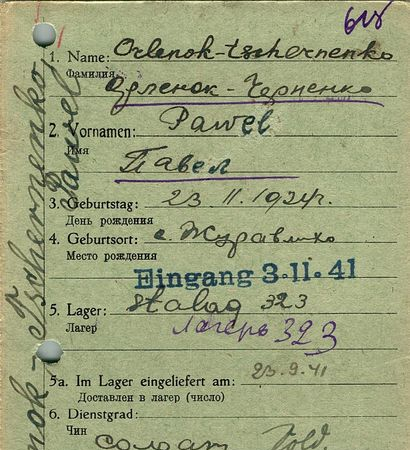 618
1. Name: Orlenok-tschernenko
Фамилия Орленок-Черненко
2. Vornamen: Pawel
Имя
Павел
3. Geburtstag: 23.11.1924г.
День рождения
4. Geburtsort: с. Журавлихо
Место рождения
Eingang 3.11.41
5. Lager: stalag 323
Лагер Лагерь 323
5a. Im Lager eingeliefert am: 23.9.41
Доставлен в лагер (число)
6. Dienstgrad:
Чин солдат Sold.
nok-Tschernenko
Pawel